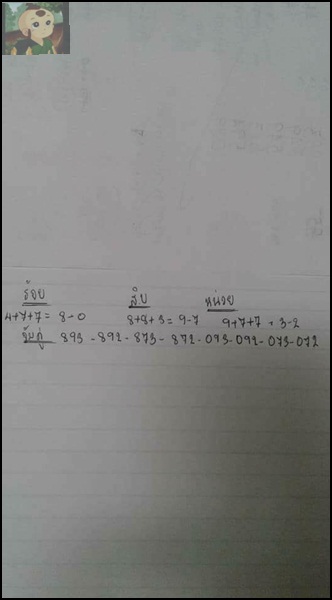 ร้อย สิบ หน่วย
4+7+7= 8-0 8+8+3= 9-7 9+7+7 = 3-2
จับคู่ 893 - 892 - 873 - 872 - 093 - 092 - 073 - 072